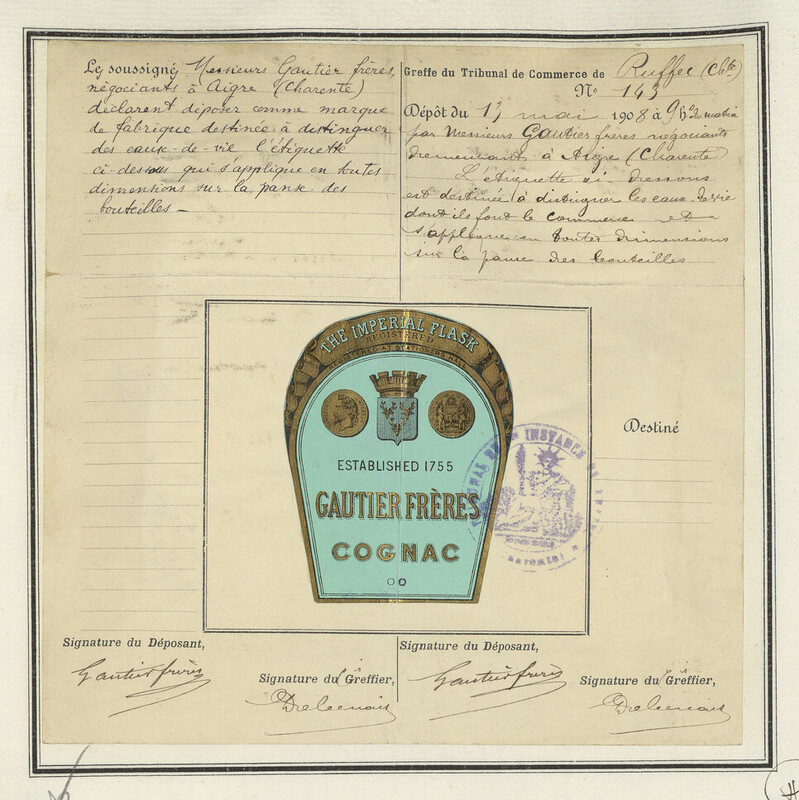 Les soussignés Messieurs Gautier frères,
négociants à Aigre (Charente)
déclarent déposer comme marque
de fabrique destinée à distinguer
des eaux-de-vie l'étiquette
ci-dessous qui s'applique en toutes
dimensions sur la panse des
bouteilles —
Greffe du Tribunal de Commerce de Ruffec (Chte)
No 143
Dépôt du 13 mai 1908 à 9 h du matin
par Messieurs Gautier frères négociants
demeurant à Aigre (Charente)
L'étiquette ci dessous
est destinée à distinguer les eaux de vie
dont ils font le commerce et
s'applique en toutes dimensions
sur la panse des bouteilles
THE IMPERIAL FLASK
REGISTERED
REGISTERED AT STATIONERS HALL
ESTABLISHED 1755
GAUTIER FRÈRES
COGNAC
INSTANCE DE
Destiné
Signature du Déposant,
Gautier frères
Signature du Greffier,
Signature du Déposant,
Gautier frères
Signature du Greffier,